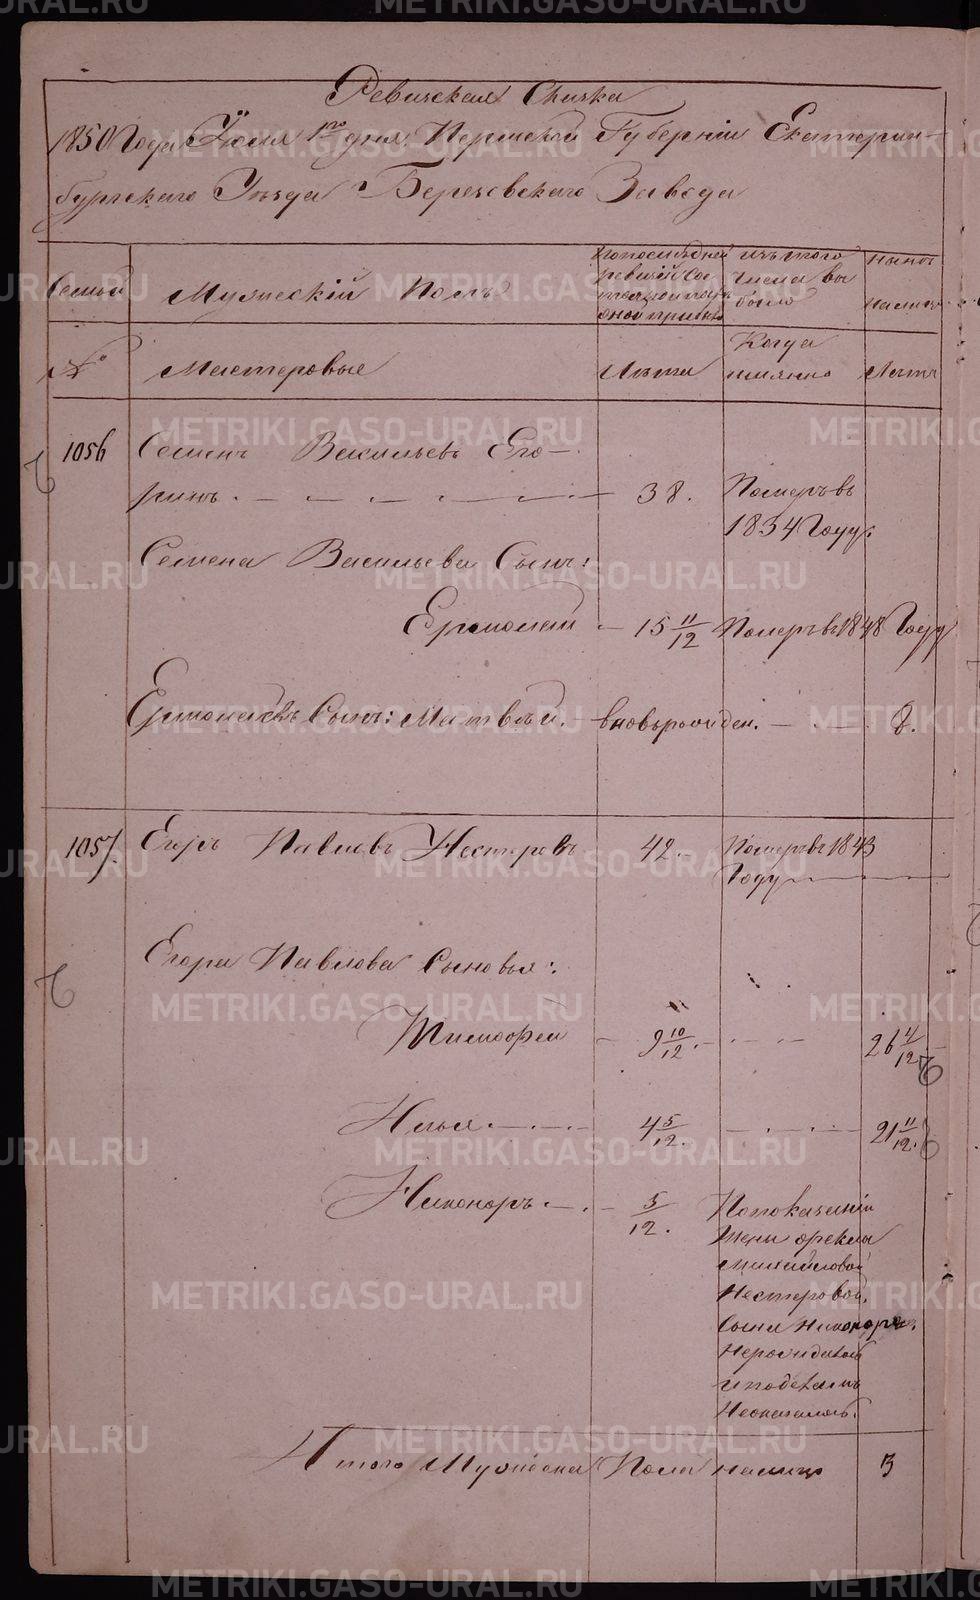 Ревизская Сказка
1850 Года Июля 1го дня, Пермской Губернии Екатерин-
бургского Уезда Березовского Завода
Семьи
Мужеский Полъ
По последней ревизии состояло и после оной прибыло
изъ того числа выбыло
Ныне налицо
№
Мастеровые
Лета
Когда имянно
Лета
1056 Семенъ Васильевъ Его-
ринъ. 38. Померъ въ
1834 Году
Семена Васильева Сынъ:
Ермолай 15 11/12 Померъ въ 1848 Году
Ермолаевъ Сынъ: Матвей. вновь рожден. 8.
1057. Егоръ Павловъ Нестеровъ 42. Померъ въ 1843
Году
Егора Павлова Сыновья:
Тимофей 9 10/12. 26 4/12
Илья 4 5/12. 21 11/12.
Никоноръ 5/12. По показанию
жены Феклы
Михайловой
Нестеровой,
Сына Никонора
Нерождалось
Неоказалось.
Итого Мужеска Пола налицо 3
METRIKI.GASO-URAL.RU